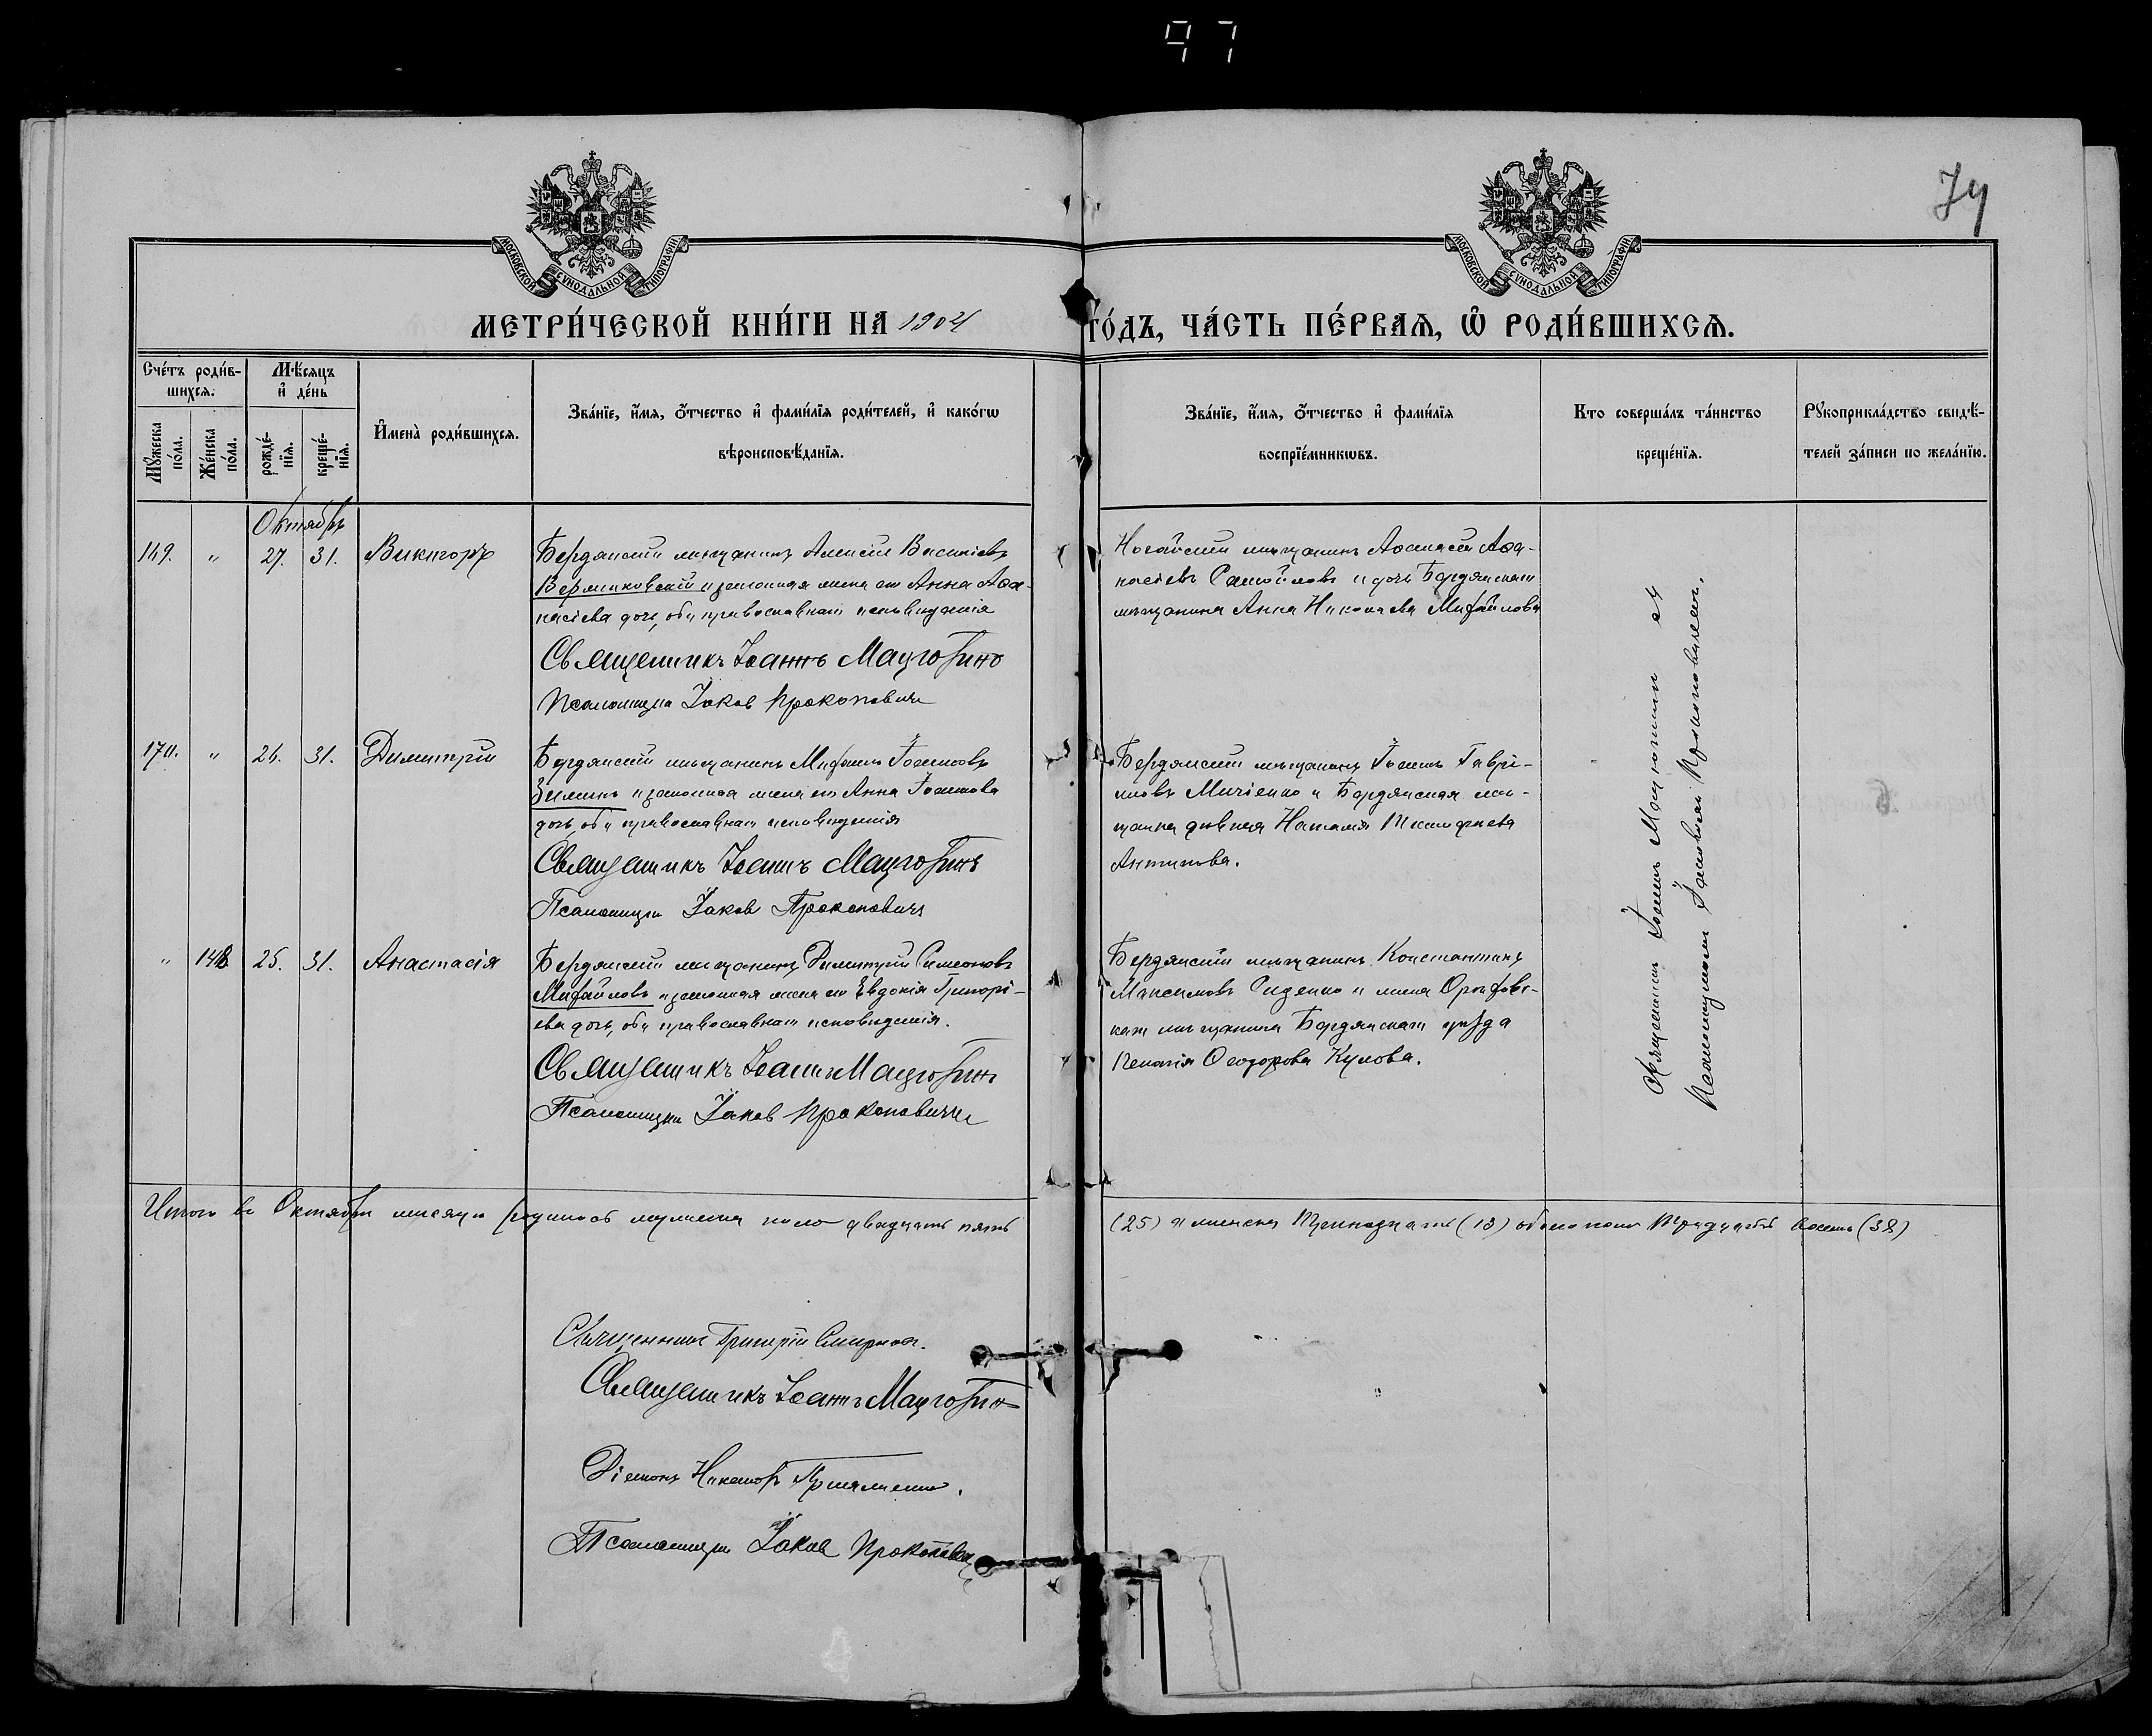 97
74
МОСКОВСКОЙ СѴНОДАЛЬНОЙ ТИПОГРАФІИ
МОСКОВСКОЙ СѴНОДАЛЬНОЙ ТИПОГРАФІИ
МЕТРИ́ЧЕСКОЙ КНИ́ГИ НА 1904 ГО́ДЪ, ЧА́СТЬ ПЕ́РВАЯ, Ѡ҆ РОДИ́ВШИХСЯ.
Сче́тъ роди́в-
шихся.
Му́жеска по́ла.
Же́нска по́ла.
Мѣ́сяцъ
и҆ де́нь
рожде́-
нїя.
креще́-
нїя.
И҆мена̀ роди́вшихся.
Зва́нїе, и҆́мя, ѻ҆́тчество и҆ фами́лїя роди́телей, и҆ како́гѡ
вѣроисповѣ́данїя.
Зва́нїе, и҆́мя, ѻ҆́тчество и҆ фами́лїя
воспрїе́мникѡвъ.
Кто соверша́лъ та́инство
креще́нїя.
Рꙋкоприкла́дство свидѣ́-
телей за́писи по жела́нїю.
Октябрь
169. " 27. 31. Викторъ
Бердянскій мѣщанинъ Алексій Васильевъ
Вермиковскій и законная жена его Анна Аѳа-
насіева дочь, оба православнаго исповѣданія
Священникъ Іоаннъ
Псаломщикъ Іаковъ Прокоповичъ
Ногайскій мѣщанинъ Аѳанасій Аѳа-
насіевъ Самойловъ и дочь Бердянскаго
мѣщанина Анна Николаева Михайлова
170. " 26. 31. Димитрій
Бердянскій мѣщанинъ Михаилъ Іоанновъ
Зиминъ и законная жена его Анна Іоаннова
дочь, оба православнаго исповѣданія
Священникъ Іоаннъ
Псаломщикъ Іаковъ Прокоповичъ
Бердянскій мѣщанинъ Іоаннъ Гаврі-
иловъ и Бердянская мѣ-
щанка дѣвица Наталія
Антипова.
" 148 25. 31. Анастасія
Бердянскій мѣщанинъ Димитрій Симеоновъ
Михайловъ и законная жена его Евдокія Григорі-
ева дочь, оба православнаго исповѣданія.
Священникъ Іоаннъ
Псаломщикъ Іаковъ Прокоповичъ
Бердянскій мѣщанинъ Константинъ
Максимовъ Сиденко и жена Орѣхов-
скаго мѣщанина Бердянскаго уѣзда
Пелагія Ѳеодорова Кулова.
Священникъ Іоаннъ съ
Псаломщикомъ Іаковомъ Прокоповичемъ.
Итого въ Октябрѣ мѣсяцѣ родилось мужеска пола двадцать пять (25) и женска тринадцать (13) обоего пола тридцать восемь (38)
Священникъ Григорій Смирнов.
Священникъ Іоаннъ
Діаконъ
Псаломщикъ Іаковъ Прокоповичъ